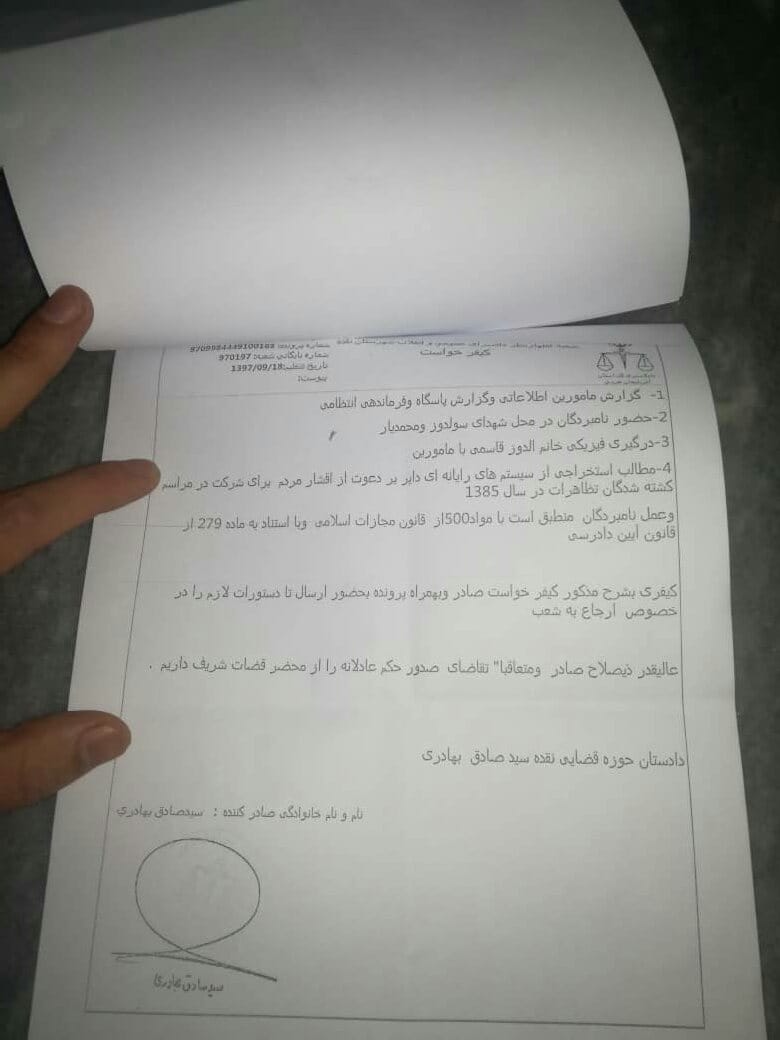 شماره پرونده: 9709984449100168
کیفر خواست
شماره بایگانی شعبه: 970197
تاریخ تنظیم:1397/09/18
پیوست:
1- گزارش مامورین اطلاعاتی وگزارش پاسگاه وفرماندهی انتظامی
2-حضور نامبردگان در محل شهدای سولدوز ومحمدیار
3-درگیری فیزیکی خانم الدوز قاسمی با مامورین
4-مطالب استخراجی از سیستم های رایانه ای دایر بر دعوت از اقشار مردم برای شرکت در مراسم
کشته شدگان تظاهرات در سال 1385
وعمل نامبردگان منطبق است با مواد500از قانون مجازات اسلامی وبا استناد به ماده 279 از
قانون ایین دادرسی
کیفری بشرح مذکور کیفر خواست صادر وبهمراه پرونده بحضور ارسال تا دستورات لازم را در
خصوص ارجاع به شعب
عالیقدر ذیصلاح صادر ومتعاقبا" تقاضای صدور حکم عادلانه را از محضر قضات شریف داریم .
دادستان حوزه قضایی نقده سید صادق بهادری
نام و نام خانوادگی صادر کننده : سیدصادق بهادري
سید صادق بهادری